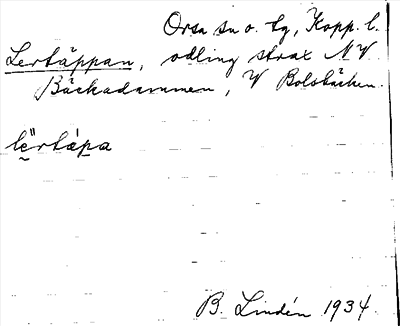 Orsa sn o. tg, Kopp. l.
Lertäppan, odling strax NV
Bäckadammen, V Bolsbäcken.
lërtápa
B. Lindén 1934.